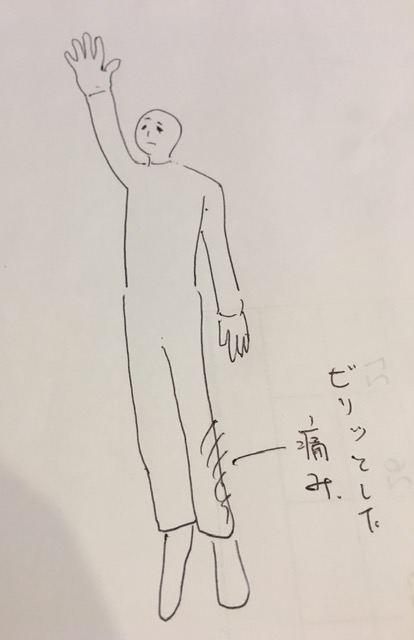 ビリッとした
痛み